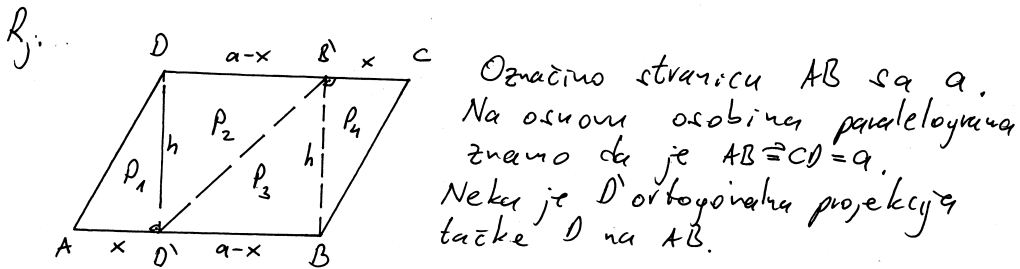 Rj:..
D a-x B' x C
P₁ h P₂ P₃ h P₄
A x D' a-x B
Označimo stranicu AB sa a.
Na osnovu osobina paralelograma
znamo da je AB≅CD=a.
Neka je D' ortogonalna projekcija
tačke D na AB.